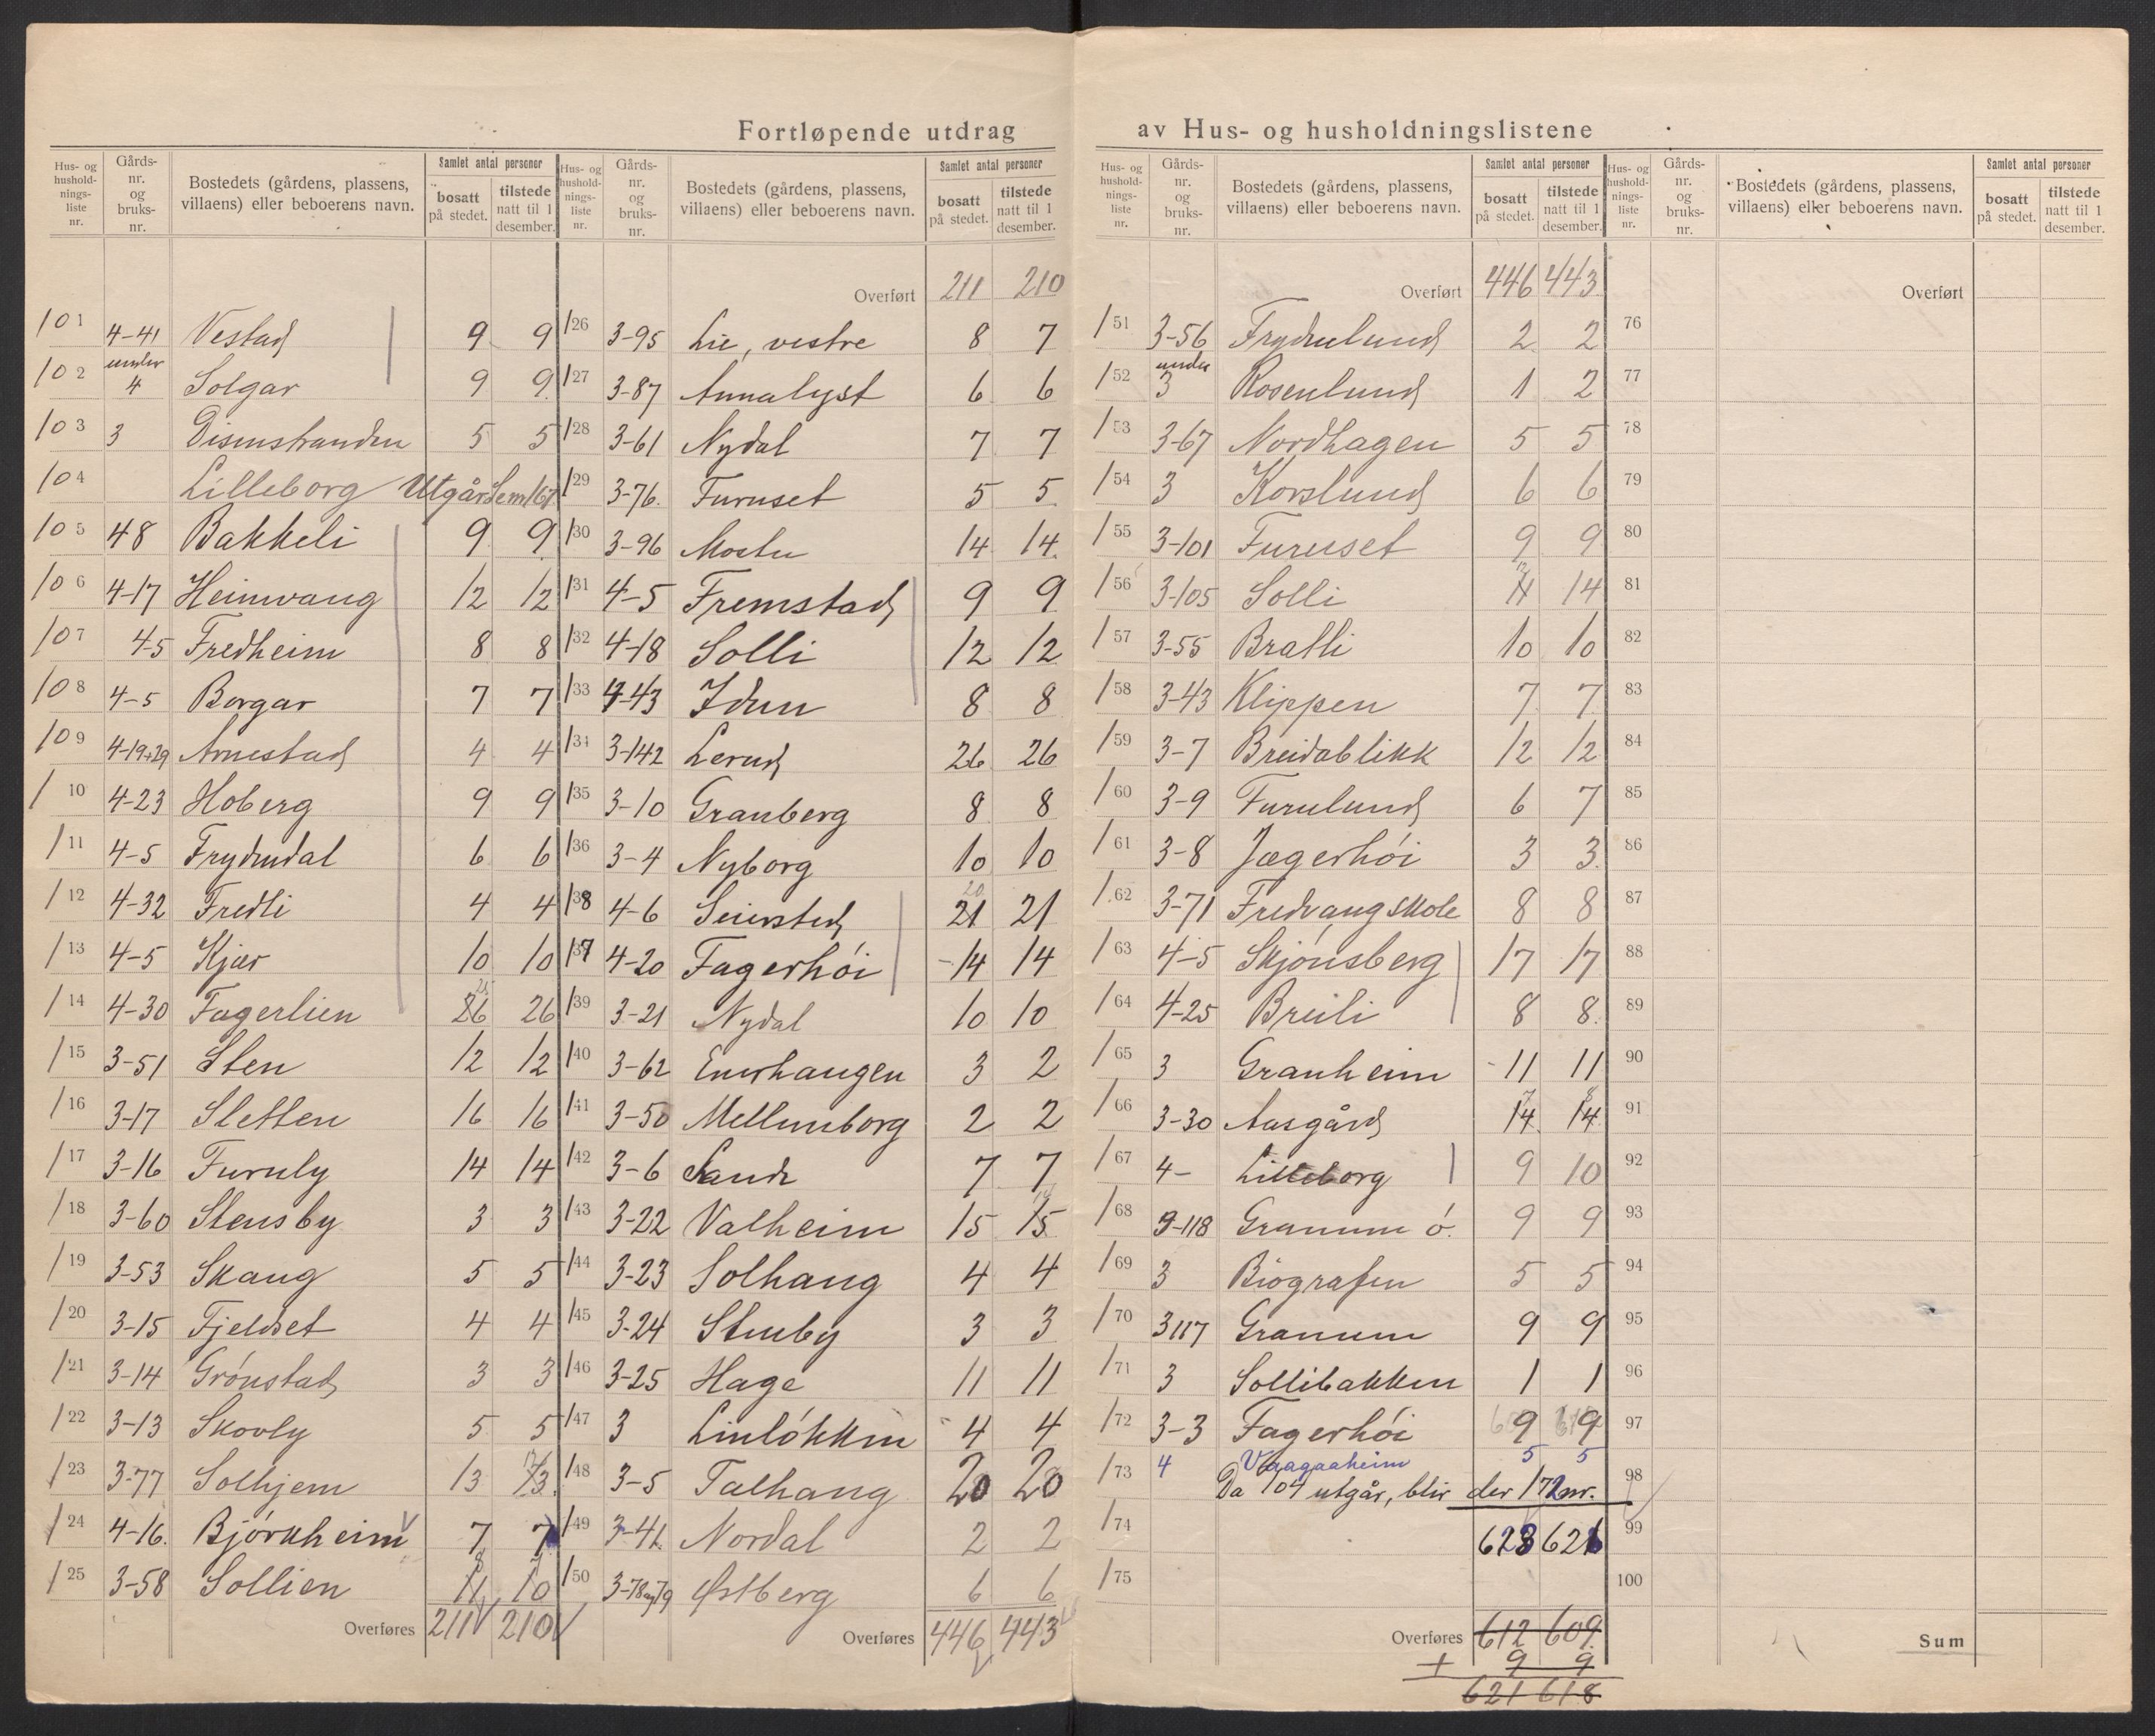 Fortløpende utdrag av Hus- og husholdningslistene
Hus- og husholdnings-liste nr. Gårds-nr. og bruks-nr. Bostedets (gårdens, plassens, villaens) eller beboerens navn. Samlet antal personer bosatt på stedet. tilstede natt til 1 desember.
101 4-41 Vestad 9 9
102 under 4 Solgar 9 9
103 3 Disenstranden 5 5
104 Lilleborg Utgår se m 167
105 48 Bakkeli 9 9
106 4-17 Heimvang 12 12
107 4-5 Fredheim 8 8
108 4-5 Borgar 7 7
109 4-19+29 Arnestad 4 4
110 4-23 Hoberg 9 9
111 4-5 Frydendal 6 6
112 4-32 Fredli 4 4
113 4-5 Kjær 10 10
114 4-30 Fagerlien 26 25 26
115 3-51 Sten 12 12
116 3-17 Sletten 16 16
117 3-16 Furuly 14 14
118 3-60 Stensby 3 3
119 3-53 Skaug 5 5
120 3-15 Fjeldset 4 4
121 3-14 Grónstad 3 3
122 3-13 Skovly 5 5
123 3-77 Solhjem 13 13 12
124 4-16. Bjórkheim 7 7
125 3-58 Sollien 11 8 10 7
Overføres 211 210
Hus- og husholdnings-liste nr. Gårds-nr. og bruks-nr. Bostedets (gårdens, plassens, villaens) eller beboerens navn. Samlet antal personer bosatt på stedet. tilstede natt til 1 desember.
Overført 211 210
126 3-95 Lie, vestre 8 7
127 3-87 Annalyst 6 6
128 3-61 Nydal 7 7
129 3-76. Furuset 5 5
130 3-96 Mostu 14 14
131 4-5 Fremstad 9 9
132 4-18 Solli 12 12
133 4-43 Idun 8 8
134 3-142 Lerud 26 26
135 3-10 Granberg 8 8
136 3-4 Nyborg 10 10
138 4-6 Seierstad 21 20 21
137 4-20 Fagerhói 14 14
139 3-21 Nydal 10 10
140 3-62 Enerhaugen 3 2
141 3-50 Mellemborg 2 2
142 3-6 Sande 7 7
143 3-22 Valheim 15 15 14
144 3-23 Solhaug 4 4
145 3-24 Stenby 3 3
146 3-25 Hage 11 11
147 3 Linlókken 4 4
148 3-5 Talhaug 20 20
149 3-41 Nordal 2 2
150 3-78 og 79 Østberg 6 6
Overføres 446 443
Hus- og husholdnings-liste nr. Gårds-nr. og bruks-nr. Bostedets (gårdens, plassens, villaens) eller beboerens navn. Samlet antal personer bosatt på stedet. tilstede natt til 1 desember.
Overført 446 443
151 3-56 Frydenlund 2 2
152 under 3 Rosenlund 1 2
153 3-67 Nordhagen 5 5
154 3 Korslund 6 6
155 3-101 Furuset 9 9
156 3-105 Solli 14
157 3-55 Bratli 10 10
158 3-43 Klippen 7 7
159 3-7 Breidablikk 12 12
160 3-9 Furulund 6 7
161 3-8 Jægerhói 3 3
162 3-71 Fredvang skole 8 8
163 4-5 Skjónsberg 17 17
164 4-25 Breili 8 8
165 3 Granheim 11 11
166 3-30 Aasgård 14 7 14 8
167 4- Lilleborg 9 10
168 3-118 Granum ó. 9 9
169 3 Biografen 5 5
170 3 117 Granum 9 9
171 3 Sollibakken 1 1
172 3-3 Fagerhói 9 9
173 4 Vaagaaheim 5 5
Da 104 utgår, blir der 172 nr.
174 623 621
175
Overføres 612 609
+ 9 9
621 618
Hus- og husholdnings-liste nr. Gårds-nr. og bruks-nr. Bostedets (gårdens, plassens, villaens) eller beboerens navn. Samlet antal personer bosatt på stedet. tilstede natt til 1 desember.
Overført
76
77
78
79
80
81
82
83
84
85
86
87
88
89
90
91
92
93
94
95
96
97
98
99
100
Sum